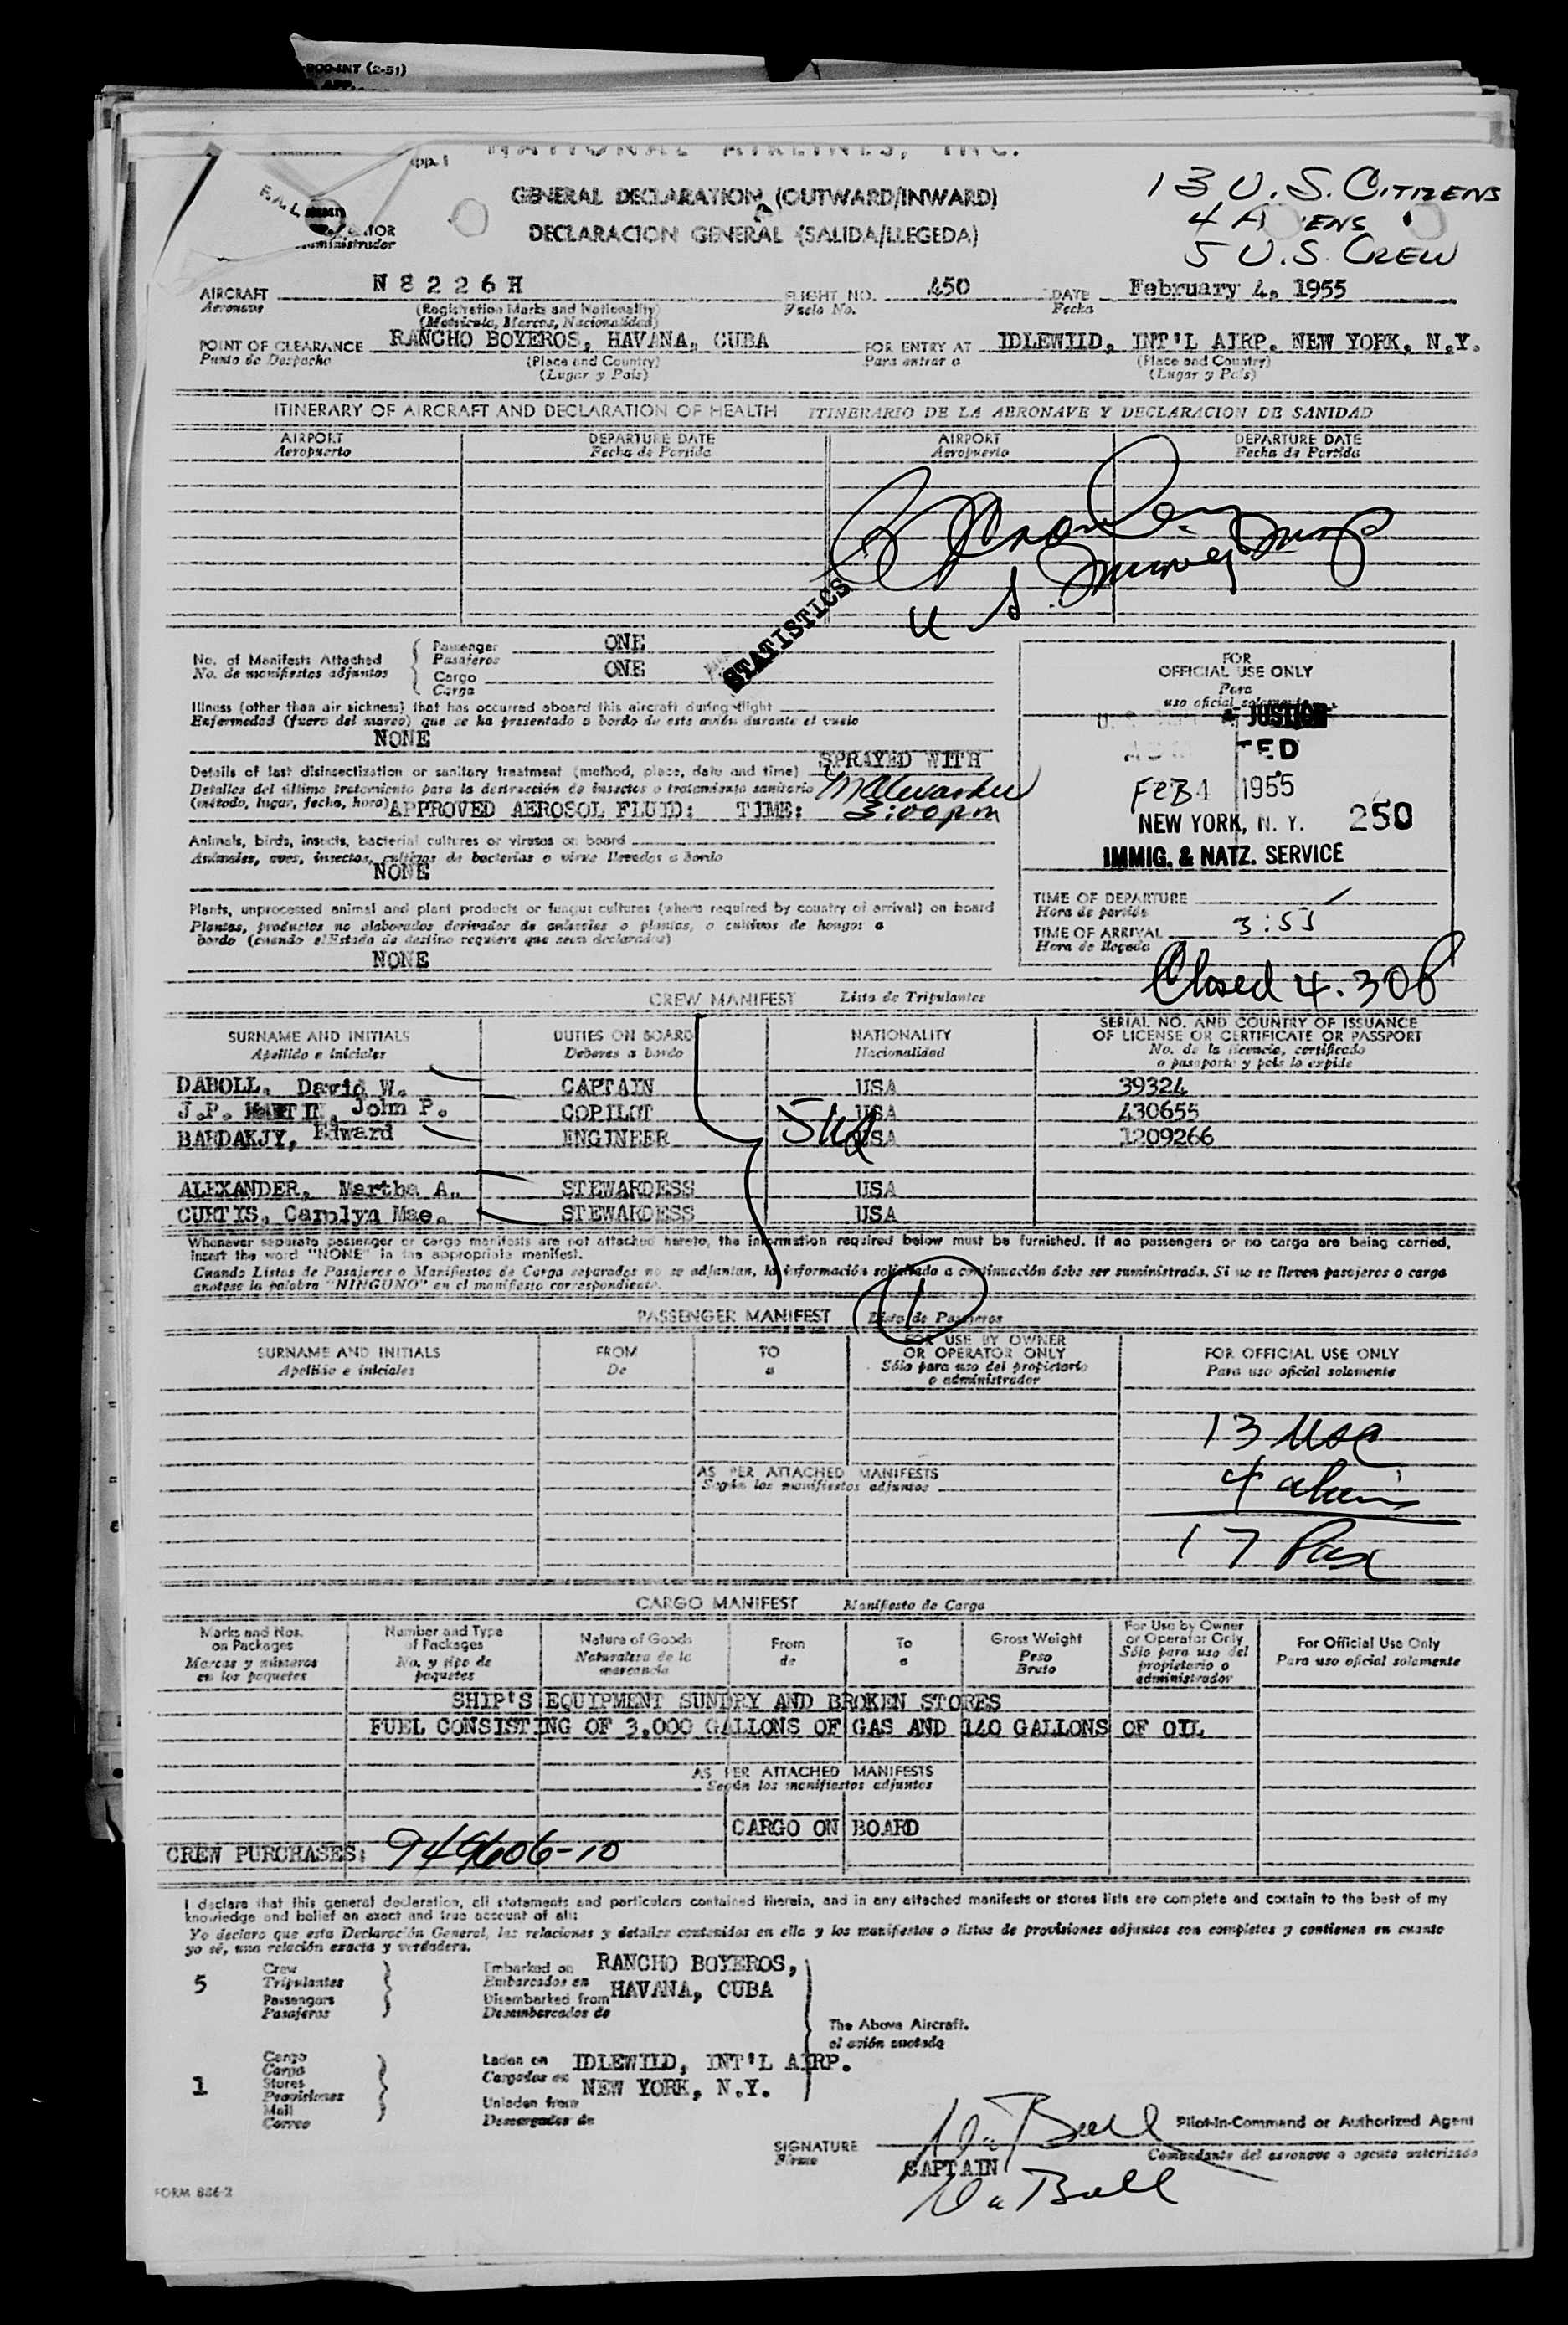 -800-INT (2-51)
NATIONAL AIRLINES, INC.
App. 1
GENERAL DECLARATION (OUTWARD/INWARD)
DECLARACION GENERAL (SALIDA/LLEGEDA)
13 U.S. CITIZENS
5 U.S. CREW
AIRCRAFT N 8 2 2 6 H FLIGHT NO. 450 DATE February 4, 1955
Aeronave (Registration Marks and Nationality) Vuelo No. Fecha
(Matricula, Marcas, Nacionalidad)
POINT OF CLEARANCE RANCHO BOYEROS, HAVANA, CUBA FOR ENTRY AT IDLEWILD, INT'L AIRP. NEW YORK, N.Y.
Punto de Despacho (Place and Country) Para entrar a (Place and Country)
(Lugar y País) (Lugar y País)
ITINERARY OF AIRCRAFT AND DECLARATION OF HEALTH ITINERARIO DE LA AERONAVE Y DECLARACION DE SANIDAD
AIRPORT DEPARTURE DATE AIRPORT DEPARTURE DATE
Aeropuerto Fecha de Partida Aeropuerto Fecha de Partida
STATISTICS
No. of Manifests Attached Passenger ONE
No. de manifiestos adjuntos Pasajeros
Cargo ONE
Carga
FOR
OFFICIAL USE ONLY
Para
uso oficial solamente
Illness (other than air sickness) that has occurred aboard this aircraft during flight
Enfermedad (fuera del mareo) que se ha presentado a bordo de este avión durante el vuelo
NONE
Details of last disinsectization or sanitary treatment (method, place, date and time) SPRAYED WITH
Detalles del último tratamiento para la destrucción de insectos o tratamiento sanitario
(método, lugar, fecha, hora) APPROVED AEROSOL FLUID: TIME: 3:00 pm
JUSTICE
FEB 4 1955
NEW YORK, N. Y. 250
IMMIG. & NATZ. SERVICE
Animals, birds, insects, bacterial cultures or viruses on board
Animales, aves, insectos, cultivos de bacterias o virus llevados a bordo
NONE
Plants, unprocessed animal and plant products or fungus cultures (where required by country of arrival) on board
Plantas, productos no elaborados derivados de animales o plantas, o cultivos de hongos a
bordo (cuando el Estado de destino requiere que sean declarados)
NONE
TIME OF DEPARTURE
Hora de partida
TIME OF ARRIVAL 3:53
Hora de llegada
Closed 4.30P
CREW MANIFEST Lista de Tripulantes
SURNAME AND INITIALS DUTIES ON BOARD NATIONALITY SERIAL NO. AND COUNTRY OF ISSUANCE
Apellido e iniciales Deberes a bordo Nacionalidad OF LICENSE OR CERTIFICATE OR PASSPORT
No. de la licencia, certificado
o pasaporte y país lo expide
DABOLL, David W. CAPTAIN USA 39324
J.P. MARTIN, John P. COPILOT USA 430655
BARDAKJY, Edward ENGINEER USA 1209266
ALEXANDER, Martha A. STEWARDESS USA
CURTIS, Carolyn Mae. STEWARDESS USA
Whenever separate passenger or cargo manifests are not attached hereto, the information required below must be furnished. If no passengers or no cargo are being carried,
insert the word "NONE" in the appropriate manifest.
Cuando Listas de Pasajeros o Manifiestos de Carga separados no se adjuntan, la información solicitada a continuación debe ser suministrada. Si no se lleven pasajeros o carga
anótese la palabra "NINGUNO" en el manifiesto correspondiente.
1
PASSENGER MANIFEST Lista de Pasajeros
SURNAME AND INITIALS FROM TO FOR USE BY OWNER FOR OFFICIAL USE ONLY
Apellido e iniciales De a OR OPERATOR ONLY Para uso oficial solamente
Sólo para uso del propietario
o administrador
13 USC
AS PER ATTACHED MANIFESTS
Según los manifiestos adjuntos
4 aliens
17 Pax
CARGO MANIFEST Manifiesto de Carga
Marks and Nos. Number and Type Nature of Goods From To Gross Weight For Use by Owner For Official Use Only
on Packages of Packages Naturaleza de la de a Peso or Operator Only Para uso oficial solamente
Marcas y números No. y tipo de mercancía Bruto Sólo para uso del
en los paquetes paquetes propietario o
administrador
SHIP'S EQUIPMENT SUNDRY AND BROKEN STORES
FUEL CONSISTING OF 3,000 GALLONS OF GAS AND 140 GALLONS OF OIL
AS PER ATTACHED MANIFESTS
Según los manifiestos adjuntos
CARGO ON BOARD
CREW PURCHASES: 949606-10
I declare that this general declaration, all statements and particulars contained therein, and in any attached manifests or stores lists are complete and contain to the best of my
knowledge and belief an exact and true account of all:
Yo declaro que esta Declaración General, las relaciones y detalles contenidos en ella y los manifiestos o listas de provisiones adjuntos son completos y contienen en cuanto
yo sé, una relación exacta y verdadera.
5 Crew Embarked on RANCHO BOYEROS,
Tripulantes Embarcados en HAVANA, CUBA
Passengers Disembarked from
Pasajeros Desembarcados de
The Above Aircraft.
el avión anotado
1 Cargo Laden on IDLEWILD, INT'L AIRP.
Carga Cargados en NEW YORK, N.Y.
Stores
Provisiones
Mail Unladen from
Correo Descargados de
SIGNATURE Pilot-in-Command or Authorized Agent
Firma CAPTAIN Comandante del aeronave o agente autorizado
FORM 886-2